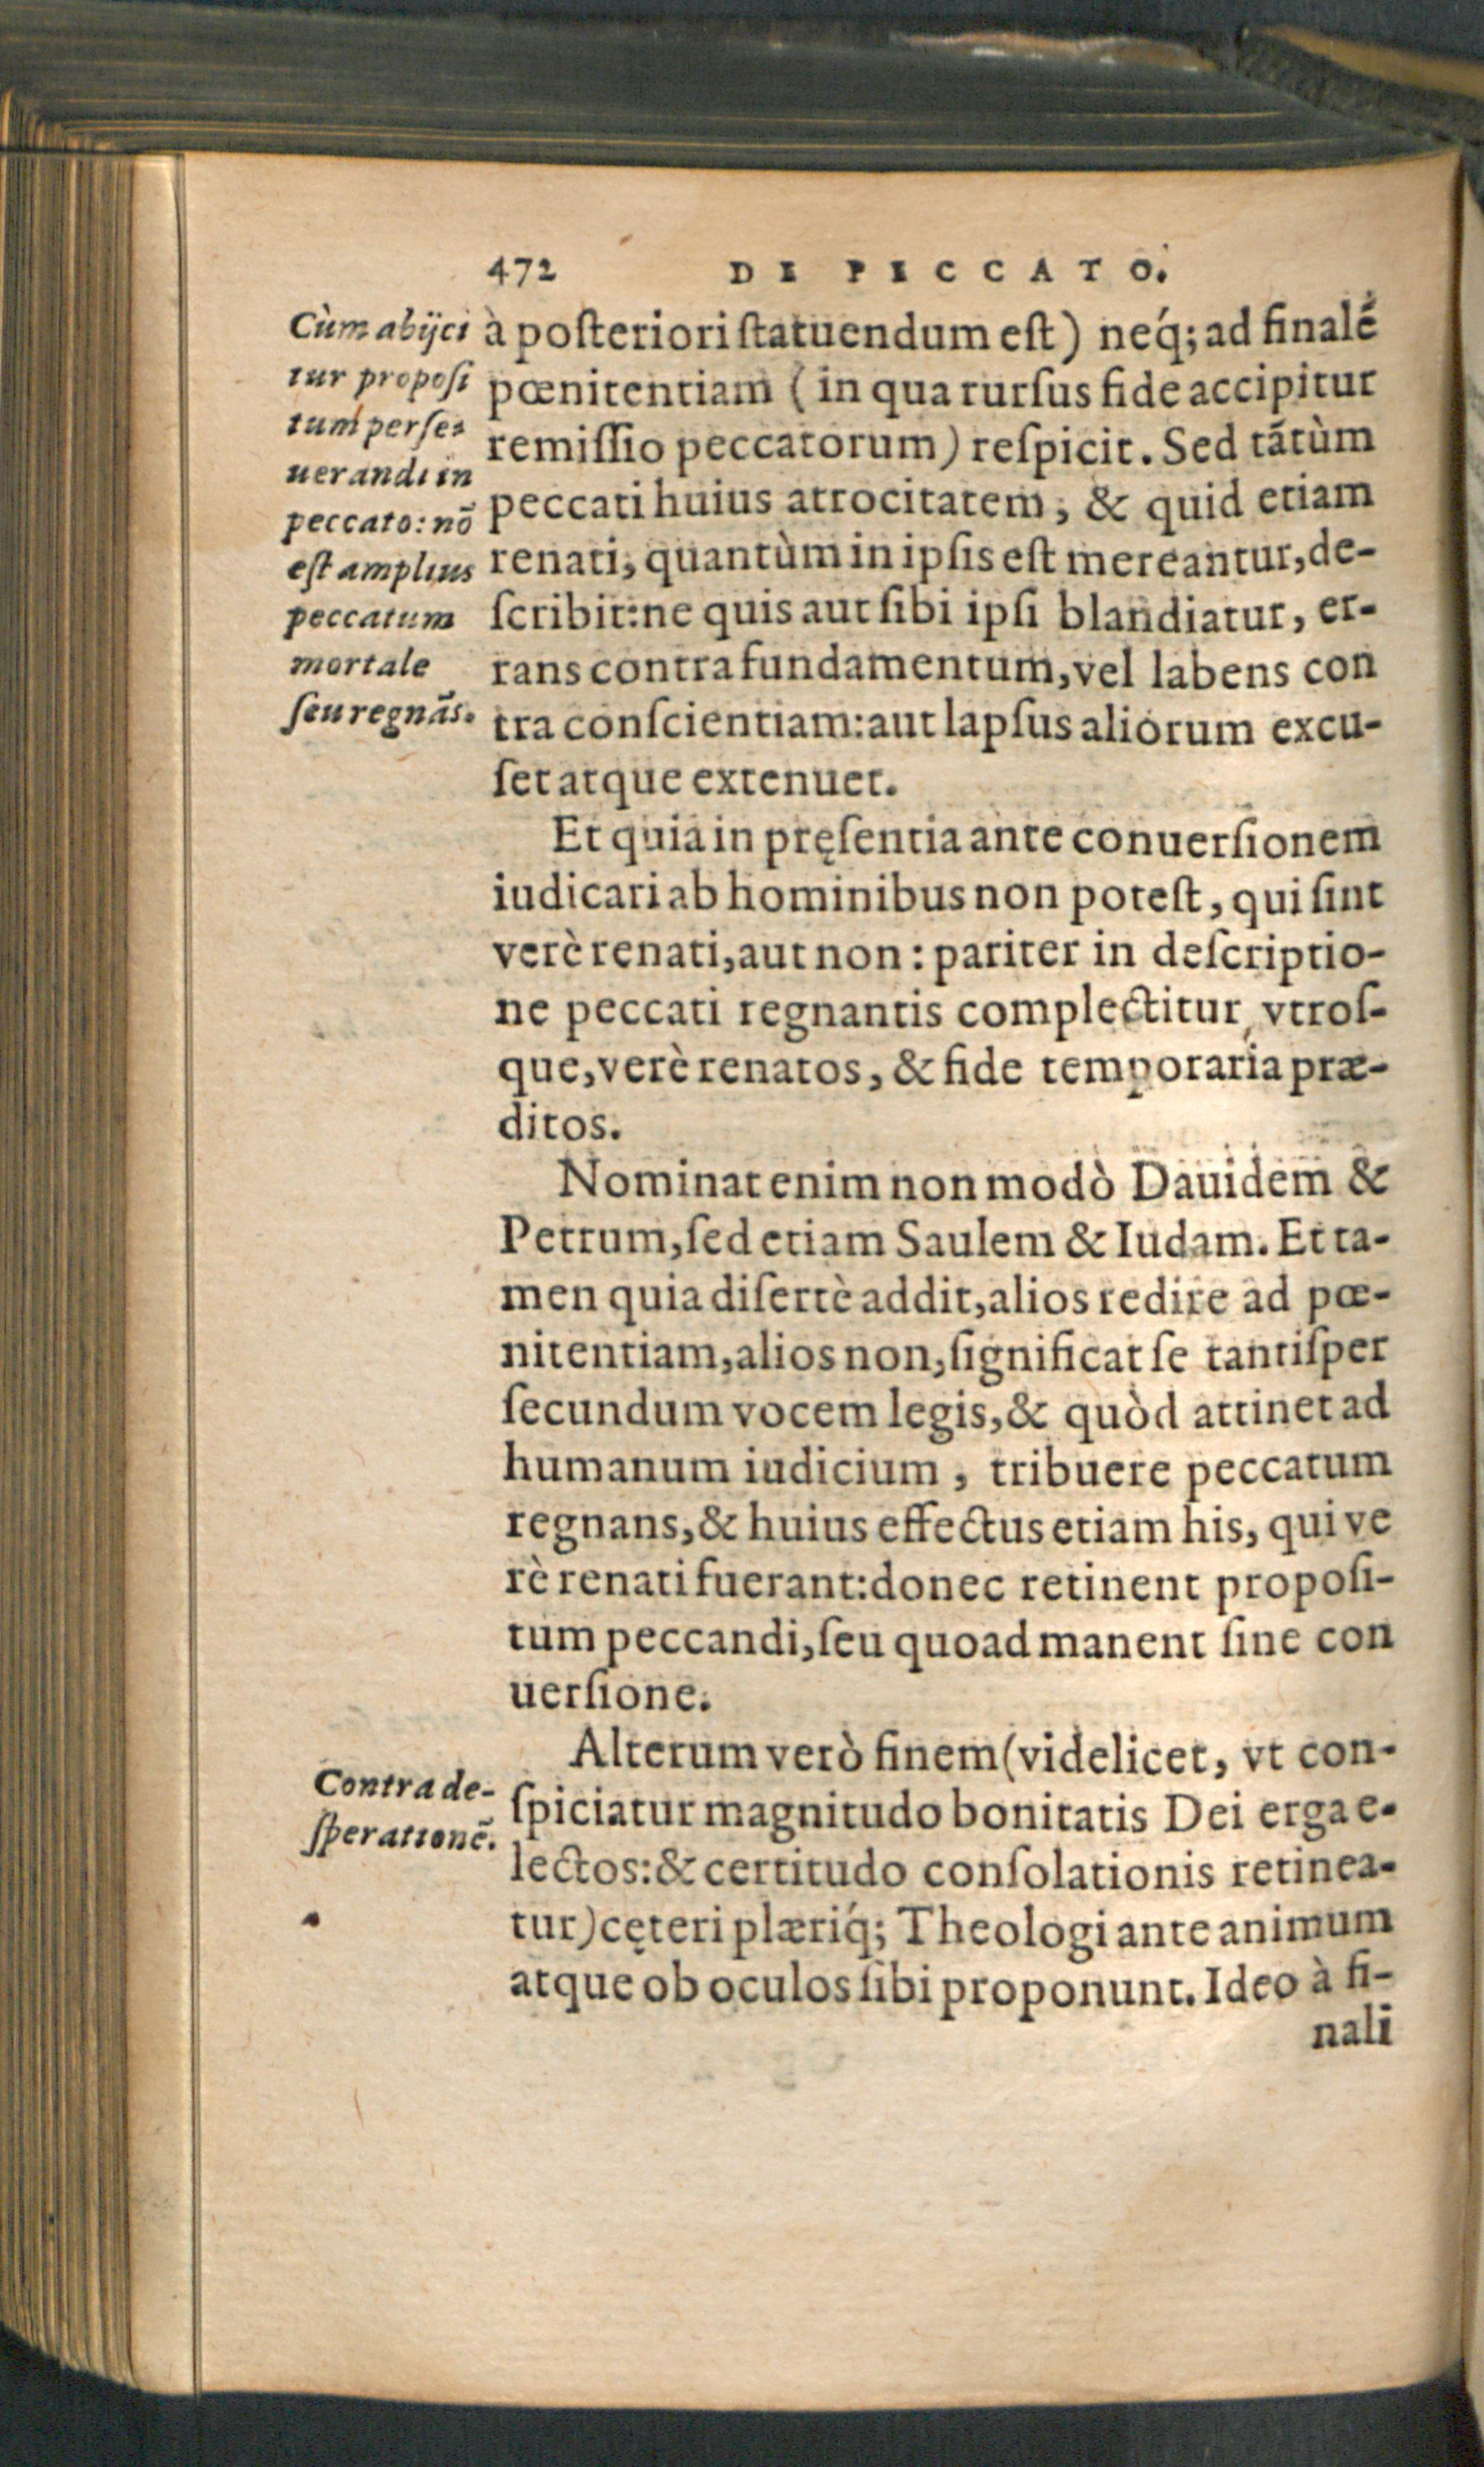 472 DE PECCATO.
Cùm abijci
tur proposi
tum perse-
uerandi in
peccato: nō
est amplius
peccatum
mortale
seu regnās.
à posteriori statuendum est) neq́; ad finalē
pœnitentiam (in qua rursus fide accipitur
remissio peccatorum) respicit. Sed tātùm
peccati huius atrocitatem, & quid etiam
renati, quantùm in ipsis est mereantur, de-
scribit: ne quis aut sibi ipsi blandiatur, er-
rans contra fundamentum, vel labens con
tra conscientiam: aut lapsus aliorum excu-
set atque extenuet.
Et quia in pręsentia ante conuersionem
iudicari ab hominibus non potest, qui sint
verè renati, aut non: pariter in descriptio-
ne peccati regnantis complectitur vtros-
que, verè renatos, & fide temporaria præ-
ditos.
Nominat enim non modò Dauidem &
Petrum, sed etiam Saulem & Iudam. Et ta-
men quia disertè addit, alios redire ad pœ-
nitentiam, alios non, significat se tantisper
secundum vocem legis, & quòd attinet ad
humanum iudicium, tribuere peccatum
regnans, & huius effectus etiam his, qui ve
rè renati fuerant: donec retinent proposi-
tum peccandi, seu quoad manent sine con
uersione.
Contra de-
sperationē.
Alterum verò finem (videlicet, vt con-
spiciatur magnitudo bonitatis Dei erga e-
lectos: & certitudo consolationis retinea-
tur) cęteri plæriq́; Theologi ante animum
atque ob oculos sibi proponunt. Ideo à fi-
nali